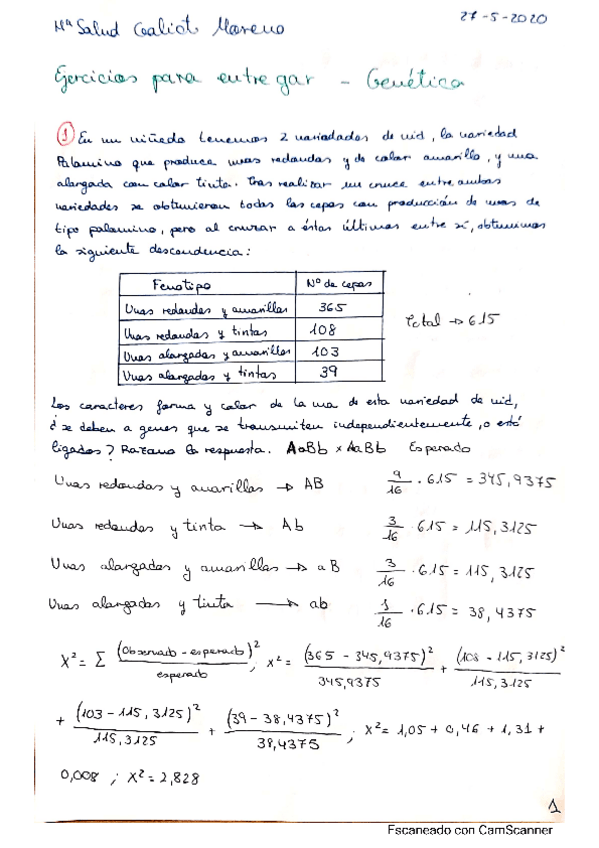 27-5-2020
Mª Salud Galiot Moreno
Ejercicios para entregar - Genética
1 En un viñedo tenemos 2 variedades de vid, la variedad
Palomino que produce uvas redondas y de color amarillo, y una
alargada con color tinta. Tras realizar un cruce entre ambas
variedades se obtuvieron todas las cepas con producción de uvas de
tipo palomino, pero al cruzar a éstas últimas entre sí, obtuvimos
la siguiente descendencia:
Fenotipo Nº de cepas
Uvas redondas y amarillas 365
Uvas redondas y tintas 108
Uvas alargadas y amarillas 103
Uvas alargadas y tintas 39
Total → 615
Los caracteres forma y color de la uva de esta variedad de vid,
¿se deben a genes que se transmiten independientemente, o está
ligados? Razona la respuesta. AaBb x AaBb Esperado
Uvas redondas y amarillas → AB 9/16 · 615 = 345,9375
Uvas redondas y tinta → Ab 3/16 · 615 = 115,3125
Uvas alargadas y amarillas → aB 3/16 · 615 = 115,3125
Uvas alargadas y tinta → ab 1/16 · 615 = 38,4375
X² = Σ (Observado - esperado)²/esperado ; X² = (365 - 345,9375)²/345,9375 + (108 - 115,3125)²/115,3125
+ (103 - 115,3125)²/115,3125 + (39 - 38,4375)²/38,4375 ; X² = 1,05 + 0,46 + 1,31 +
0,008 ; X² = 2,828
1
Escaneado con CamScanner